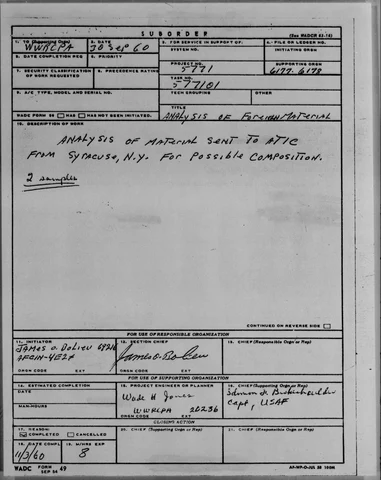 SUBORDER
(See WADCR 63-16)
1. TO (Supporting Orgn) 2. DATE 3. FOR SERVICE IN SUPPORT OF: 4. FILE OR LEDGER NO.
WWRCPA 30 Sep 60 SYSTEM NO. INITIATING ORGN
5. DATE COMPLETION REQ 6. PRIORITY
PROJECT NO. SUPPORTING ORGN
7. SECURITY CLASSIFICATION OF WORK REQUESTED 8. PRECEDENCE RATING 5771 6177-6178
TASK NO.
577101
9. A/C TYPE, MODEL AND SERIAL NO. TECH GROUPING OTHER
TITLE
WADC FORM HAS HAS NOT BEEN INITIATED. ANALYSIS OF Foreign MATERIAL
10. DESCRIPTION OF WORK
ANALYSIS OF MATERIAL SENT TO ATIC
FROM SYRACUSE, N.Y. FOR POSSIBLE COMPOSITION.
2 samples
CONTINUED ON REVERSE SIDE
FOR USE OF RESPONSIBLE ORGANIZATION
11. INITIATOR 12. SECTION CHIEF 13. CHIEF (Responsible Orgn or Rep)
JAMES O. 69216
AFCIN-4E2X James O.
ORGN CODE EXT ORGN CODE EXT
FOR USE OF SUPPORTING ORGANIZATION
14. ESTIMATED COMPLETION 15. PROJECT ENGINEER OR PLANNER 16. CHIEF (Supporting Orgn or Rep)
Wade H Jones
MAN-HOURS WWRCPA 20236 Capt, USAF
ORGN CODE EXT
CLOSING ACTION
17. REASON: 20. CHIEF (Supporting Orgn or Rep) 21. CHIEF (Responsible Orgn or Rep)
COMPLETED CANCELLED
18. DATE COMPL 19. M/HRS EXP
11/3/60 8
WADC FORM SEP 54 49 AF-WP-O-JUL 58 100M